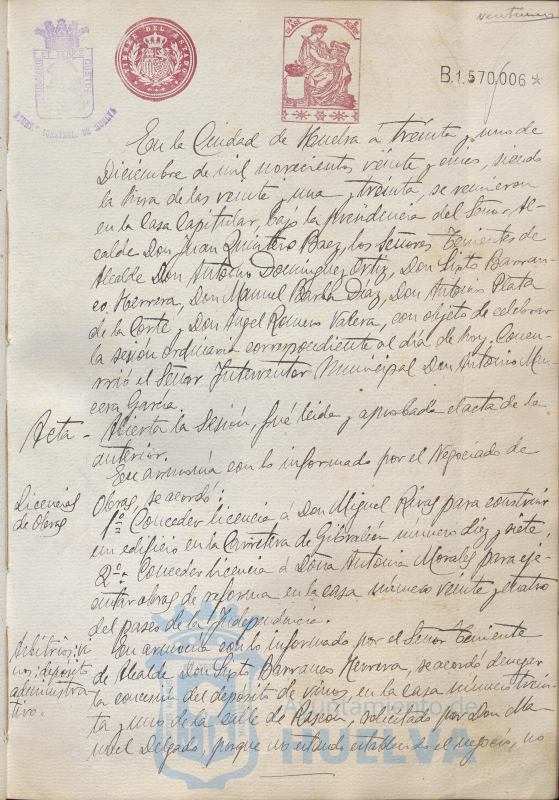 B.1.570.006 *
TIMBRE DEL ESTADO
AYUNTº CONSTNAL. DE HUELVA
En la Ciudad de Huelva á treinta y uno de
Diciembre de mil novecientos veinte y cinco, siendo
la hora de las veinte y una y treinta, se reunieron
en la Casa Capitular, bajo la presidencia del Señor Al-
calde Don Juan Quintero Baez, los Señores Tenientes de
Alcalde Don Antonio Dominguez Ortiz, Don Sixto Barran-
co Herrera, Don Manuel Barba Díaz, Don Antonio Plata
de la Corte y Don Angel Romero Valera, con objeto de celebrar
la sesión ordinaria correspondiente al día de hoy. Concu-
rrió el Señor Interventor Municipal Don Antonio Man-
cera García.
Acta - Abierta la Sesión, fué leída y aprobada el acta de la
anterior.
En armonía con lo informado por el Negociado de
Licencias Obras, se acordó:
de Obras 1º = Conceder licencia á Don Miguel Rivas para construir
un edificio en la Carretera de Gibraleón número diez y siete.
2º = Conceder licencia á Doña Antonia Morales para eje-
cutar obras de reforma en la casa número veinte y cuatro
del paseo de la Independencia.
Arbitrios: vi- En armonía con lo informado por el Señor Teniente
nos: depósito de Alcalde Don Sixto Barranco Herrera, se acordó denegar
administra- la concesión del depósito de vinos, en la casa número trein-
tivo. ta y uno de la calle de Rascón, solicitado por Don Ma-
nuel Delgado, porque no estando establecido el negocio, no
Ayuntamiento de
HUELVA